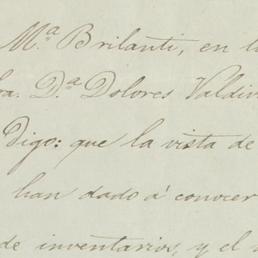 M.ª Brilanti, en
D.ª Dolores
Digo: que la vista de
han dado á conocer
de inventarios, y el